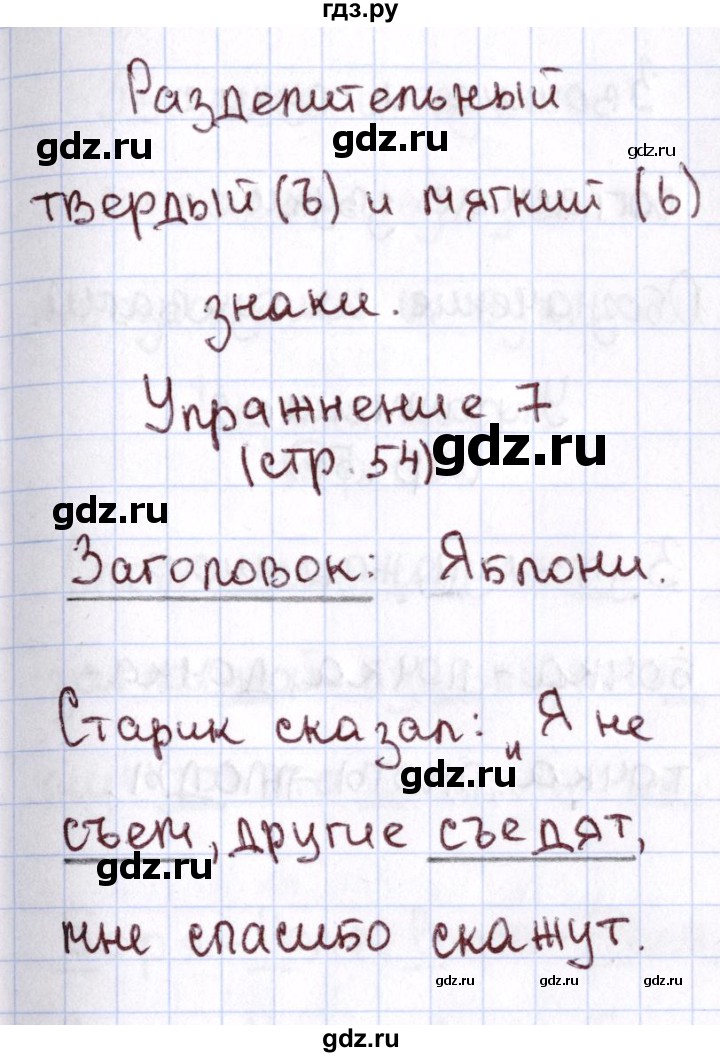 гдз.ру
Разделительный
gdz.ru gdz.ru gdz.ru
твердый (ъ) и мягкий (ь)
знаки.
Упражнение 7
(стр. 54)
gdz.ru
gdz.ru
Заголовок: Яблони.
Старик сказал: „Я не
gdz.ru
съем, другие съедят,
gdz.ru
мне спасибо скажут.
gdz.ru gdz.ru
gdz.ru gdz.ru gdz.ru
gdz.ru